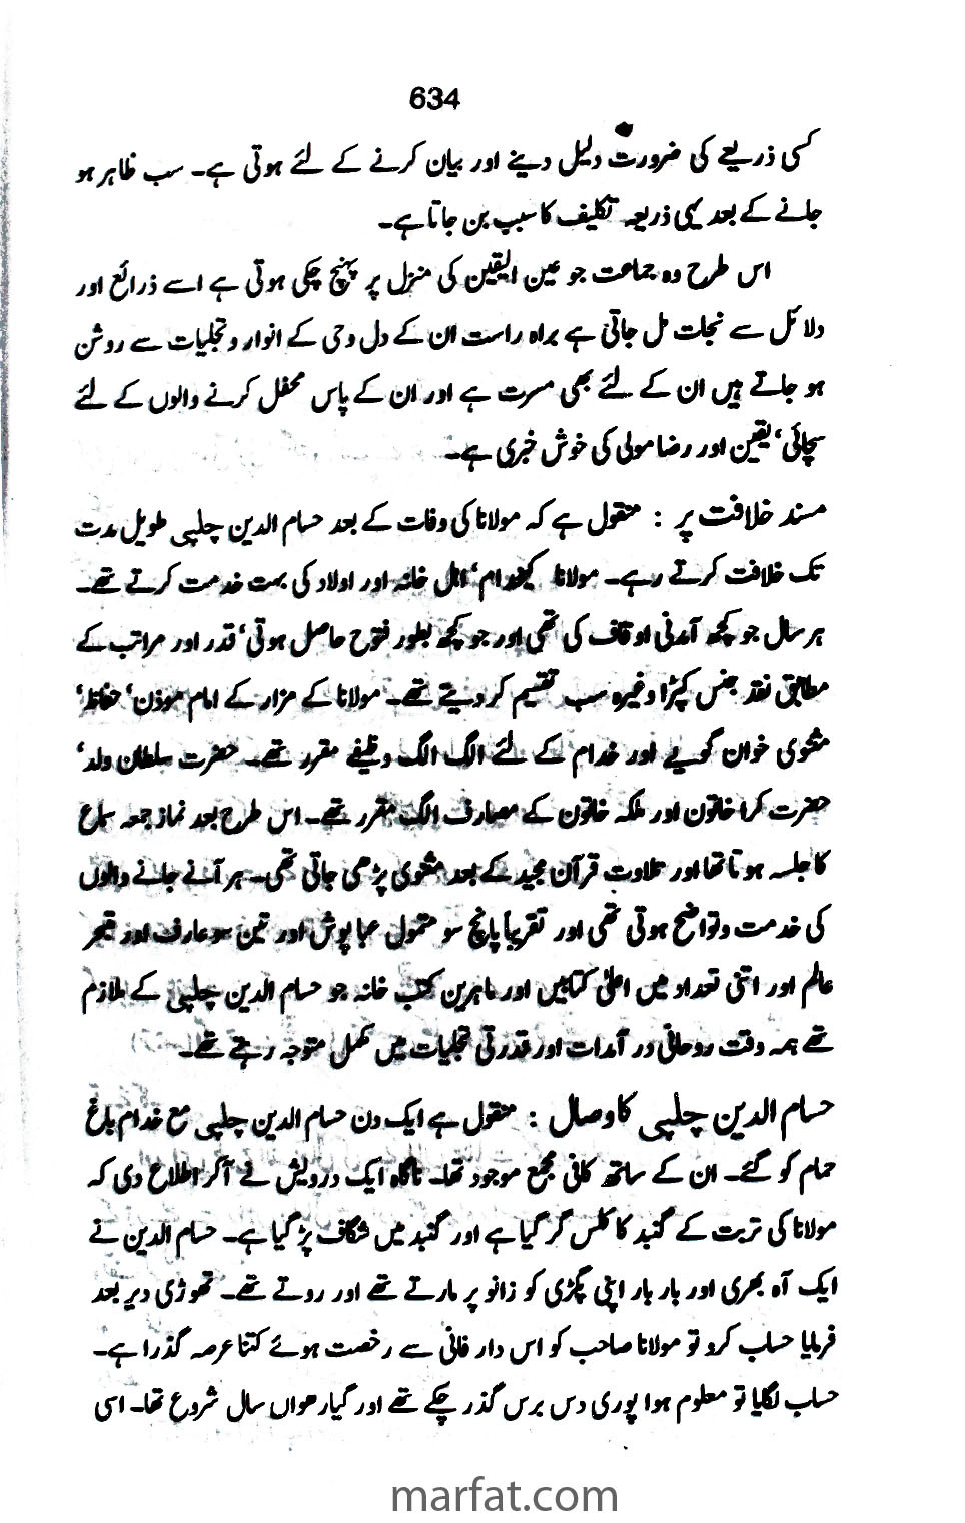 634
کسی ذریعے کی ضرورت دلیل دینے اور بیان کرنے کے لئے ہوتی ہے۔ سب ظاہر ہو
جانے کے بعد یہی ذریعہ تکلیف کا سبب بن جاتا ہے۔
اس طرح وہ جماعت جو عین الیقین کی منزل پر پہنچ چکی ہوتی ہے اسے ذرائع اور
دلائل سے نجات مل جاتی ہے براہ راست ان کے دل وحی کے انوار و تجلیات سے روشن
ہو جاتے ہیں ان کے لئے بھی مسرت ہے اور ان کے پاس محفل کرنے والوں کے لئے
سچائی‘ یقین اور رضا مولی کی خوش خبری ہے۔
مسند خلافت پر : منقول ہے کہ مولانا کی وفات کے بعد حسام الدین چلپی طویل مدت
تک خلافت کرتے رہے۔ مولانا کے خدام‘ اہل خانہ اور اولاد کی بہت خدمت کرتے تھے۔
ہر سال جو کچھ آمدنی اوقاف کی تھی اور جو کچھ بطور فتوح حاصل ہوتی‘ قدر اور مراتب کے
مطابق نقد جنس کپڑا وغیرہ سب تقسیم کر دیتے تھے۔ مولانا کے مزار کے امام موذن‘ حفاظ‘
مثنوی خوان گویے اور خدام کے لئے الگ الگ وظیفے مقرر تھے۔ حضرت سلطان ولد‘
حضرت کرا خاتون اور ملکہ خاتون کے مصارف الگ مقرر تھے۔ اس طرح بعد نماز جمعہ سماع
کا جلسہ ہوتا تھا اور تلاوت قرآن مجید کے بعد مثنوی پڑھی جاتی تھی۔ ہر آنے جانے والوں
کی خدمت و تواضع ہوتی تھی اور تقریباً پانچ سو متمول عبا پوش اور تین سو عارف اور متبحر
عالم اور اتنی تعداد میں اعلیٰ کتابیں اور ماہرین کتب خانہ جو حسام الدین چلپی کے ملازم
تھے ہمہ وقت روحانی در آمدات اور قدرتی تجلیات میں مکمل متوجہ رہتے تھے۔
حسام الدین چلپی کا وصال : منقول ہے ایک دن حسام الدین چلپی مع خدام باغ
حمام کو گئے۔ ان کے ساتھ کافی مجمع موجود تھا۔ ناگاہ ایک درویش نے آکر اطلاع دی کہ
مولانا کی تربت کے گنبد کا کلس گر گیا ہے اور گنبد میں شگاف پڑ گیا ہے۔ حسام الدین نے
ایک آہ بھری اور بار بار اپنی پگڑی کو زانو پر مارتے تھے اور روتے تھے۔ تھوڑی دیر بعد
فرمایا حساب کرو تو مولانا صاحب کو اس دار فانی سے رخصت ہوئے کتنا عرصہ گذرا ہے۔
حساب لگایا تو معلوم ہوا پوری دس برس گذر چکے تھے اور گیارھواں سال شروع تھا۔ اسی
marfat.com